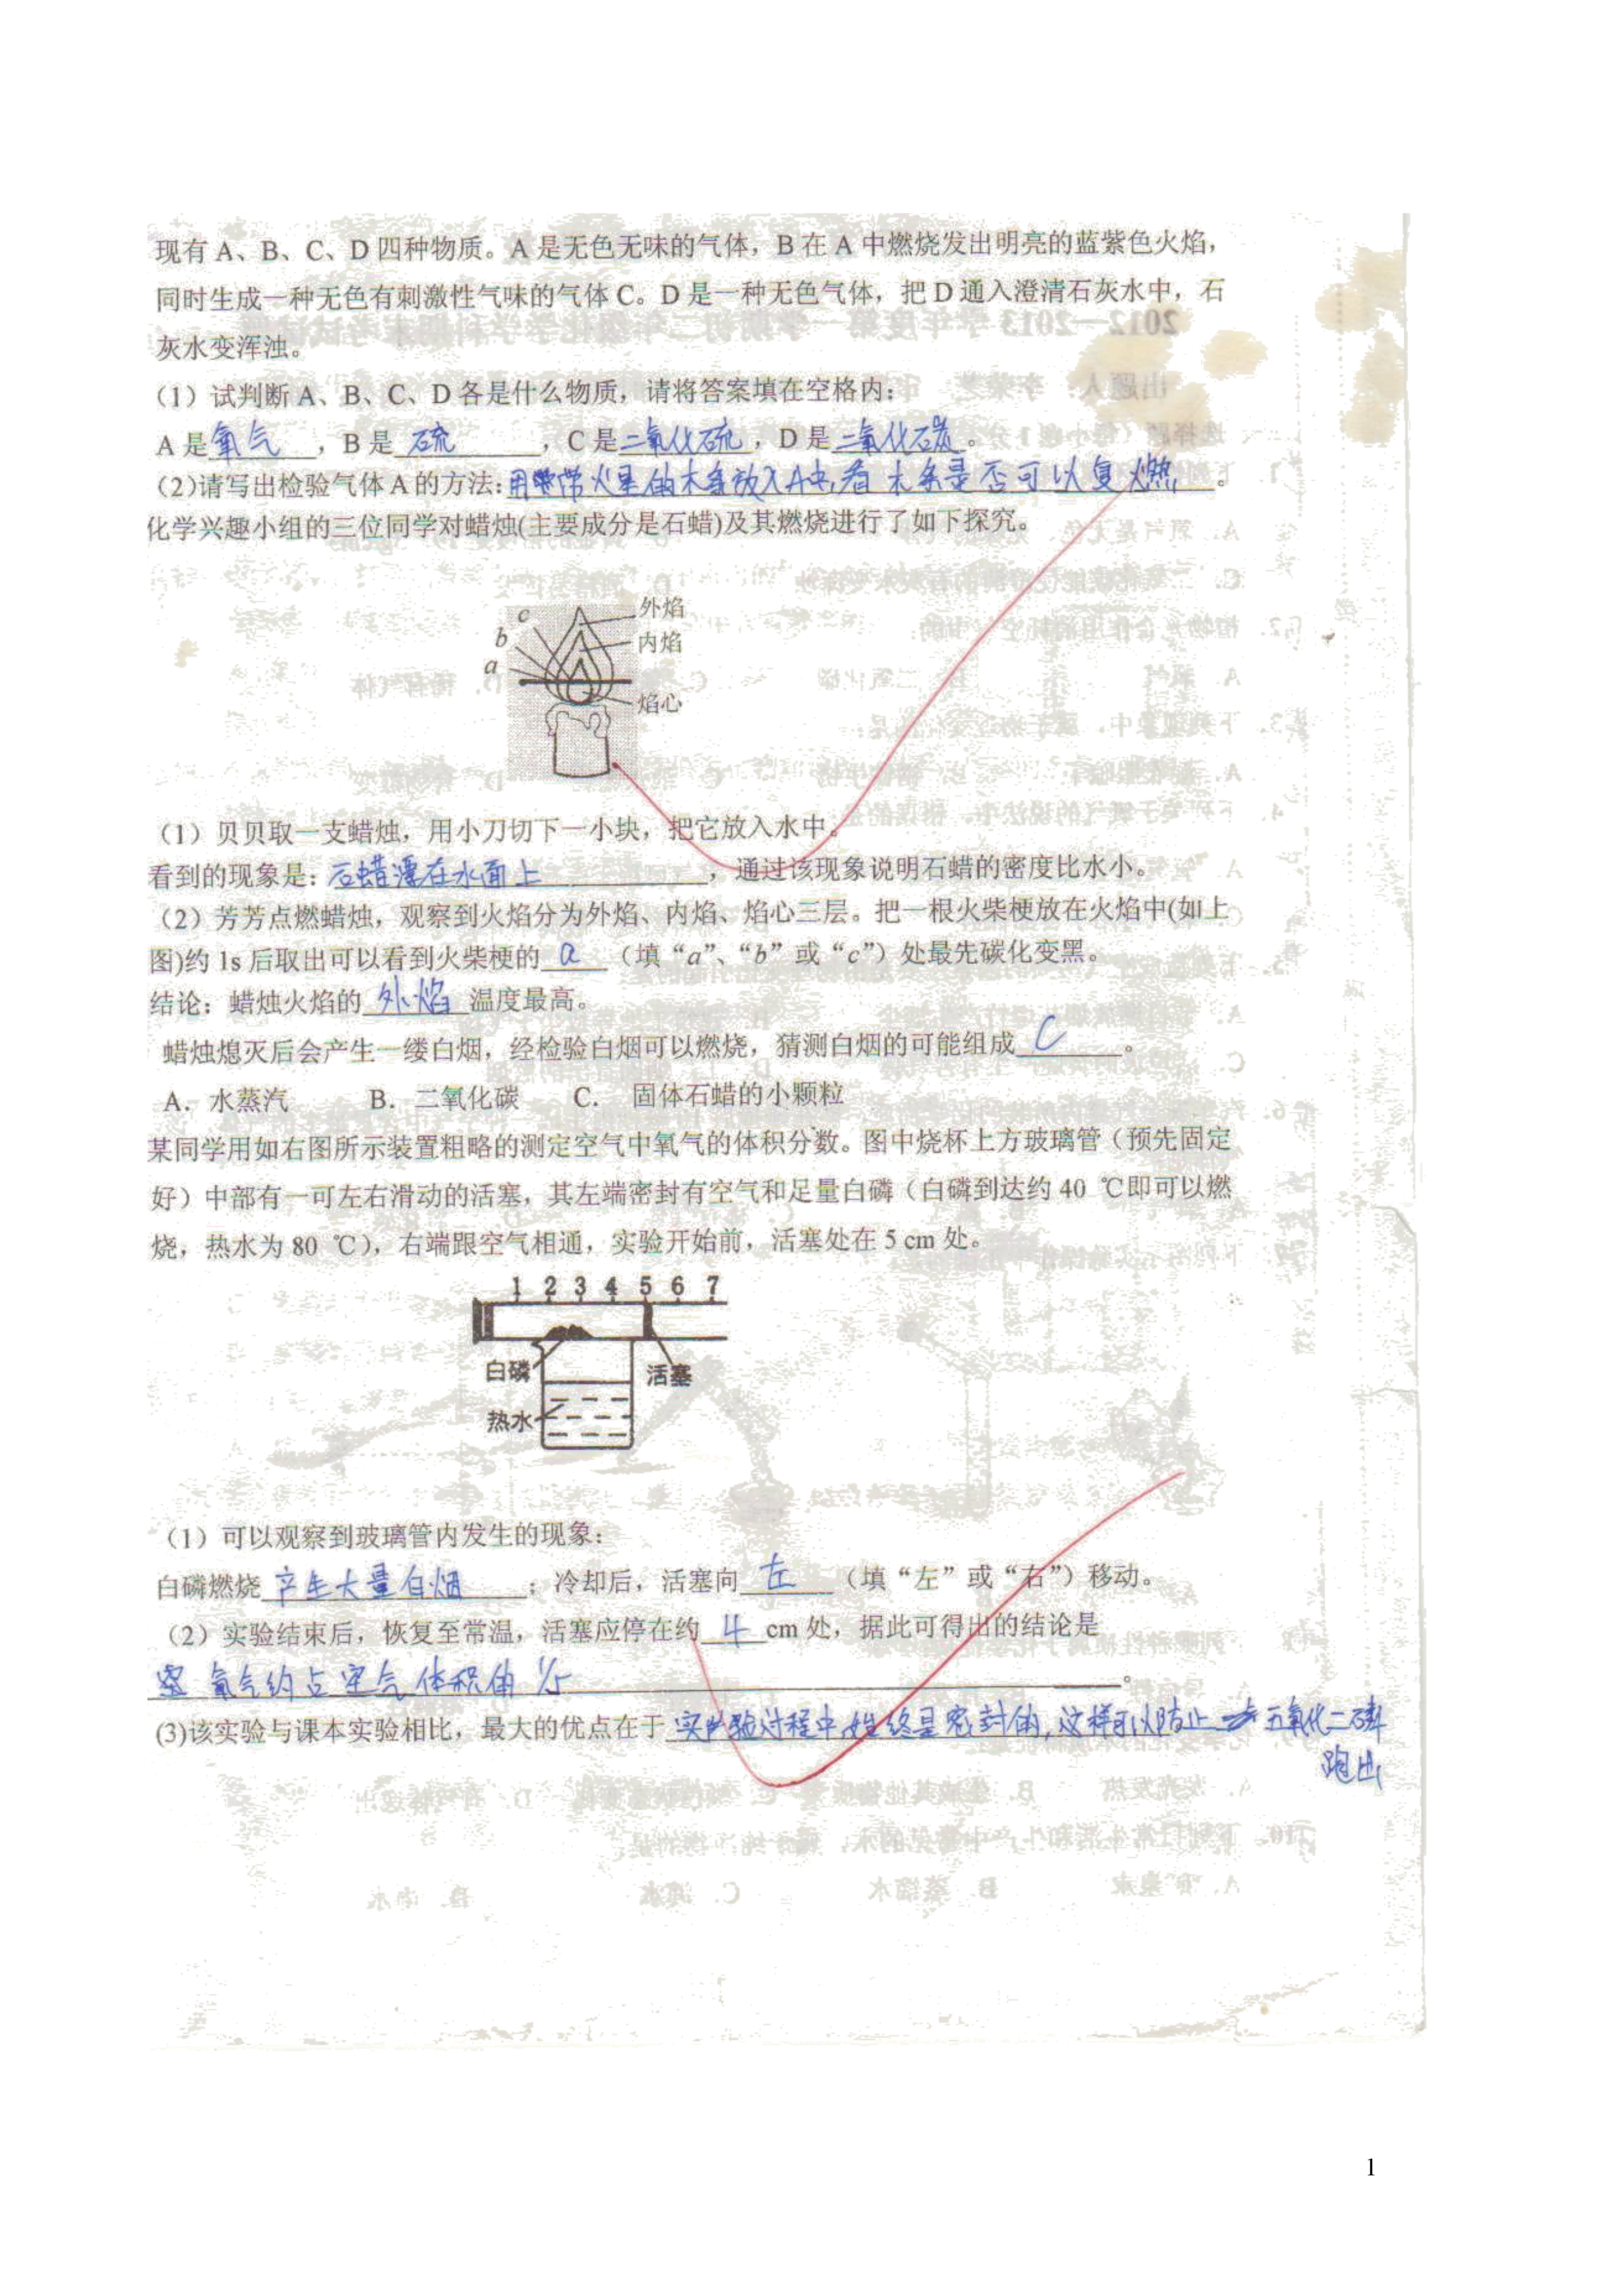 现有 A、B、C、D 四种物质。A 是无色无味的气体，B 在 A 中燃烧发出明亮的蓝紫色火焰，
同时生成一种无色有刺激性气味的气体 C。D 是一种无色气体，把 D 通入澄清石灰水中，石
灰水变浑浊。
（1）试判断 A、B、C、D 各是什么物质，请将答案填在空格内：
A 是氧气，B 是 硫，C 是二氧化硫，D 是二氧化碳。
（2)请写出检验气体 A 的方法:用带火星的木条放入A中,看木条是否可以复燃。
化学兴趣小组的三位同学对蜡烛(主要成分是石蜡)及其燃烧进行了如下探究。
c 外焰
b 内焰
a
焰心
（1）贝贝取一支蜡烛，用小刀切下一小块，把它放入水中。
看到的现象是：石蜡漂在水面上，通过该现象说明石蜡的密度比水小。
（2）芳芳点燃蜡烛，观察到火焰分为外焰、内焰、焰心三层。把一根火柴梗放在火焰中(如上
图)约 1s 后取出可以看到火柴梗的 a （填“a”、“b”或“c”）处最先碳化变黑。
结论：蜡烛火焰的 外焰 温度最高。
蜡烛熄灭后会产生一缕白烟，经检验白烟可以燃烧，猜测白烟的可能组成 C 。
A．水蒸汽 B．二氧化碳 C． 固体石蜡的小颗粒
某同学用如右图所示装置粗略的测定空气中氧气的体积分数。图中烧杯上方玻璃管（预先固定
好）中部有一可左右滑动的活塞，其左端密封有空气和足量白磷（白磷到达约 40 ℃即可以燃
烧，热水为 80 ℃），右端跟空气相通，实验开始前，活塞处在 5 cm 处。
1 2 3 4 5 6 7
白磷 活塞
热水
（1）可以观察到玻璃管内发生的现象：
白磷燃烧 产生大量白烟 ；冷却后，活塞向 左 （填“左”或“右”）移动。
（2）实验结束后，恢复至常温，活塞应停在约 4 cm 处，据此可得出的结论是
氧气约占空气体积的 1/5 。
(3)该实验与课本实验相比，最大的优点在于 实验过程中始终是密封的,这样可以防止五氧化二磷
跑出
1